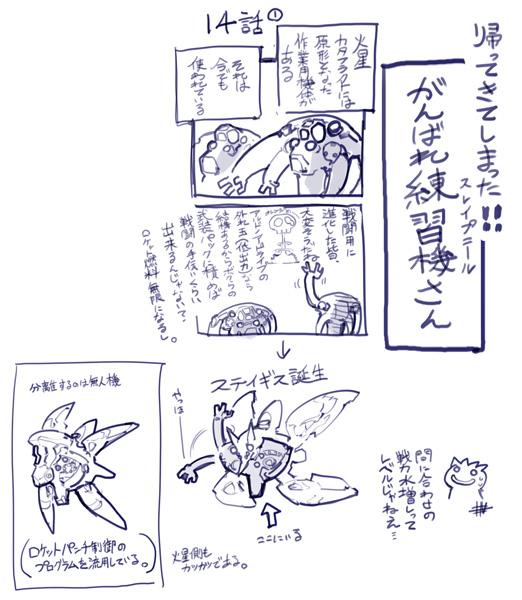 帰ってきてしまった!!
がんばれ練習機さん
スレイプニール
14話①
火星
カタフラクトには
原形となった
作業用機体が
ある
それは
今でも
使われている
戦闘用に
進化した皆、
大変そうだね
アルドノアドライブの
結構あるからボクらの
武装パック積めば
戦闘の手伝いくらい
出来るんじゃないて、
ロケット燃料無限になるし。
↓
ステイギス誕生
やっほー
ここにいる
火星側も
カツカツである。
分離するのは無人機
(ロケットパンチ制御の
プログラムを流用している。)
間に合わせの
戦力水増しって
レベルじゃねえ…